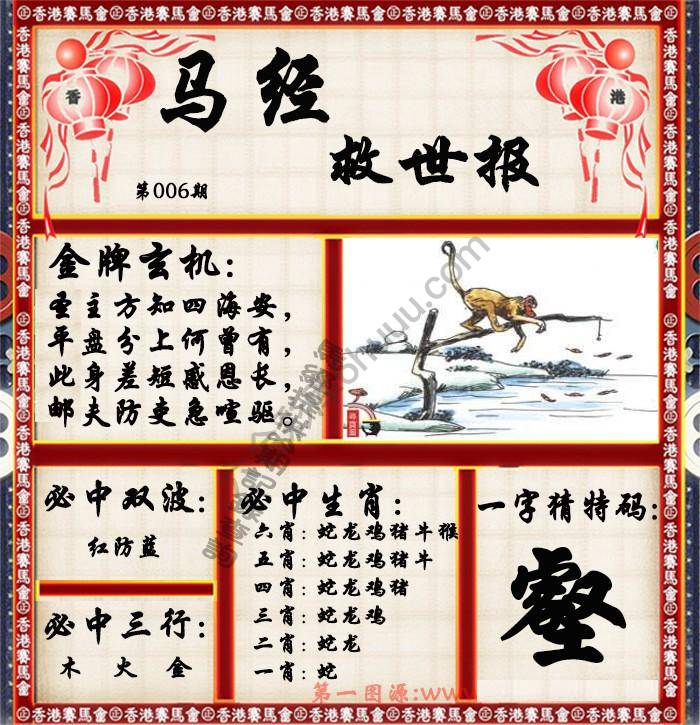 香港賽馬會
香
港
马经
救世报
第006期
金牌玄机:
圣主方知四海安,
平盘分上何曾有,
此身差短感恩长,
邮夫防吏急喧驱。
必中双波:
红防蓝
必中三行:
木 火 金
必中生肖:
六肖:蛇龙鸡猪牛猴
五肖:蛇龙鸡猪牛
四肖:蛇龙鸡猪
三肖:蛇龙鸡
二肖:蛇龙
一肖:蛇
一字猜特码:
壑
第一图源:www